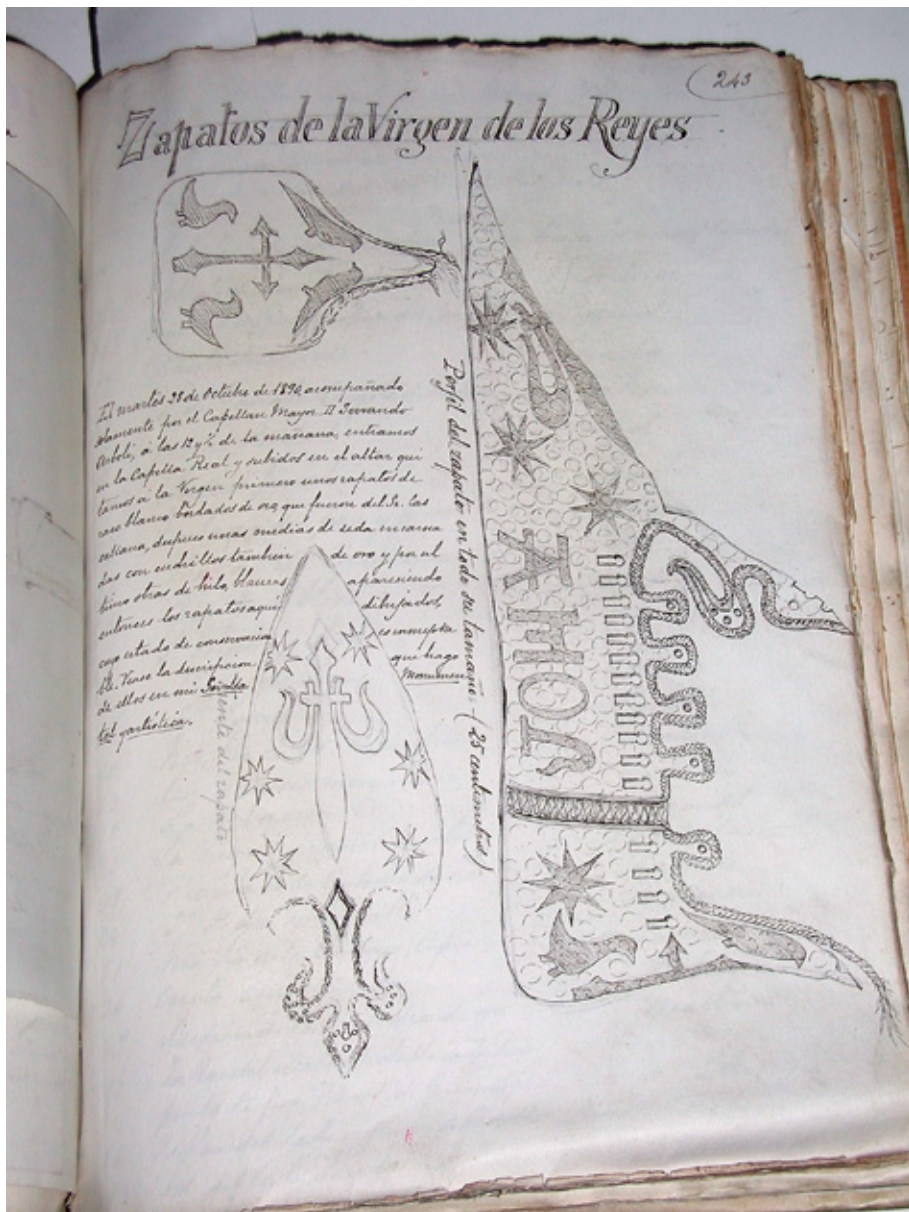 243
Zapatos de la Virgen de los Reyes
El martes 28 de Octubre de 1890, acompañado
solamente por el Capellan Mayor D Servando
Arboli, á las 12 y ½ de la mañana, entramos
en la Capilla Real y subidos en el altar qui
tamos á la Virgen primero unos zapatos de
raso blanco bordados de oro, que fueron del Sr. Las
tras, despues unas medias de seda encarna
das con cuadrillos tambien de oro y por ul
timo otras de hilo, blancas apareciendo
entonces los zapatos aqui dibujados,
cuyo estado de conservacion es inmejora
ble. Vease la descripcion que hago
de ellos en mi Sevilla Monumen
tal y artística.
Frente del zapato
Perfil del zapato en todo su tamaño (25 centimetros)
AMOR